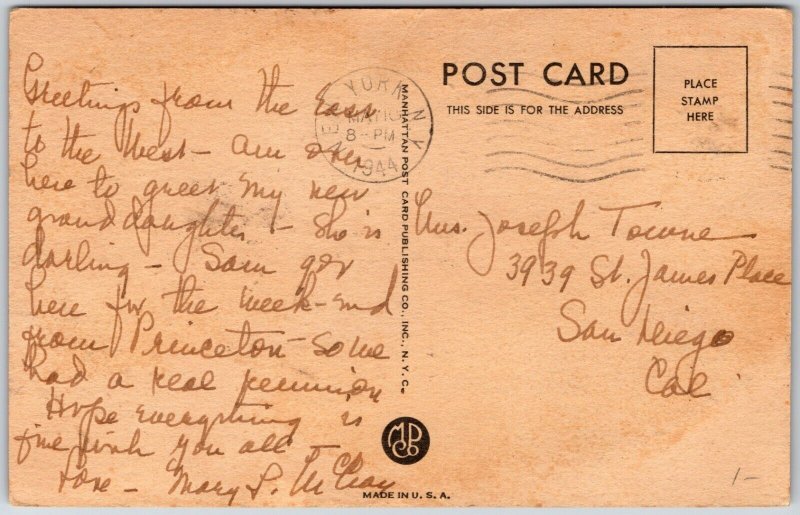 Greetings from the East
to the West - am over
here to greet my new
granddaughter - She is
darling - Sam got
here for the week-end
from Princeton - so we
had a real reunion
Hope everything is
fine with you all -
Love - Mary L. McClay
NEW YORK, N.Y.
MAY 10
8 - PM
1944
MANHATTAN POST CARD PUBLISHING CO., INC., N.Y.C.
POST CARD
THIS SIDE IS FOR THE ADDRESS
PLACE
STAMP
HERE
Mrs. Joseph Towne
3939 St. James Place
San Diego
Cal
MPCo
MADE IN U.S.A.
1-